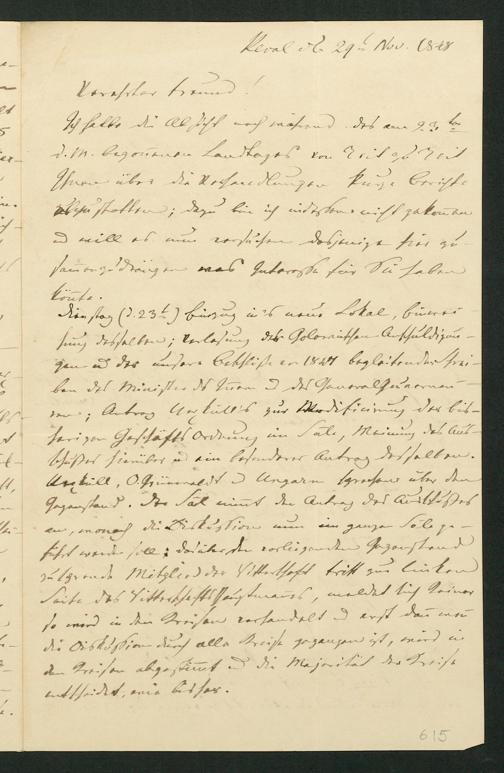 Reval d. 29t Nov. 1848
Verehrter Freund!
Ich hatte die Absicht noch während des am 23ten
d. M. begonnenen Landtages von Zeit zu Zeit
Ihnen über die Verhandlungen kurze Berichte
abzustatten; dazu bin ich indessen nicht gekommen
u will es nun versuchen dasjenige hier zu-
sammenzudrängen was Interesse für Sie haben
könnte.
Dienstag (d. 23t) Einzug in's neue Lokal,
desselben; Verlesung des
gen u des unsere Beschlüsse v 1847 begleitenden Schrei-
ben des Ministers des Innern u des Generalgouverneu-
Antrag Uexküll's zur Modificirung der bis-
herigen Geschäfts Ordnung im Saale, Meinung des Aus-
schusses hierüber u ein besonderer Antrag desselben.
Uexküll, O. Grünewaldt u Ungern sprechen über den
Gegenstand. Der Saal nimmt den Antrag des Ausschusses
an, wonach die Diskussion nun im ganzen Saale ge-
führt werden soll; das über den vorliegenden Gegenstand
Mitglied der Ritterschaft tritt zur linken
Seite des Ritterschaftshauptmannes, meldet sich Keiner
so wird in den Kreisen verhandelt u erst dann wenn
die Diskussion durch alle Kreise gegangen ist, wird in
den Kreisen abgestimmt u die Majorität der Kreise
entscheidet, wie bisher.
615